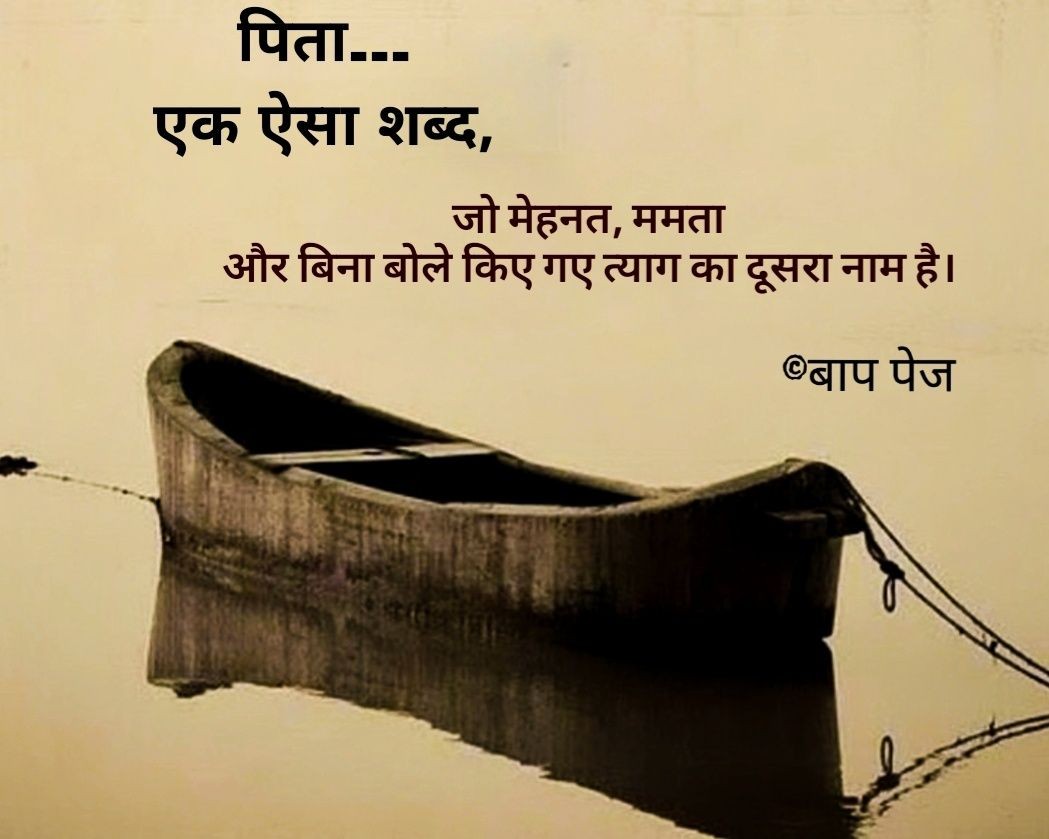 पिता---
एक ऐसा शब्द,
जो मेहनत, ममता
और बिना बोले किए गए त्याग का दूसरा नाम है।
©बाप पेज